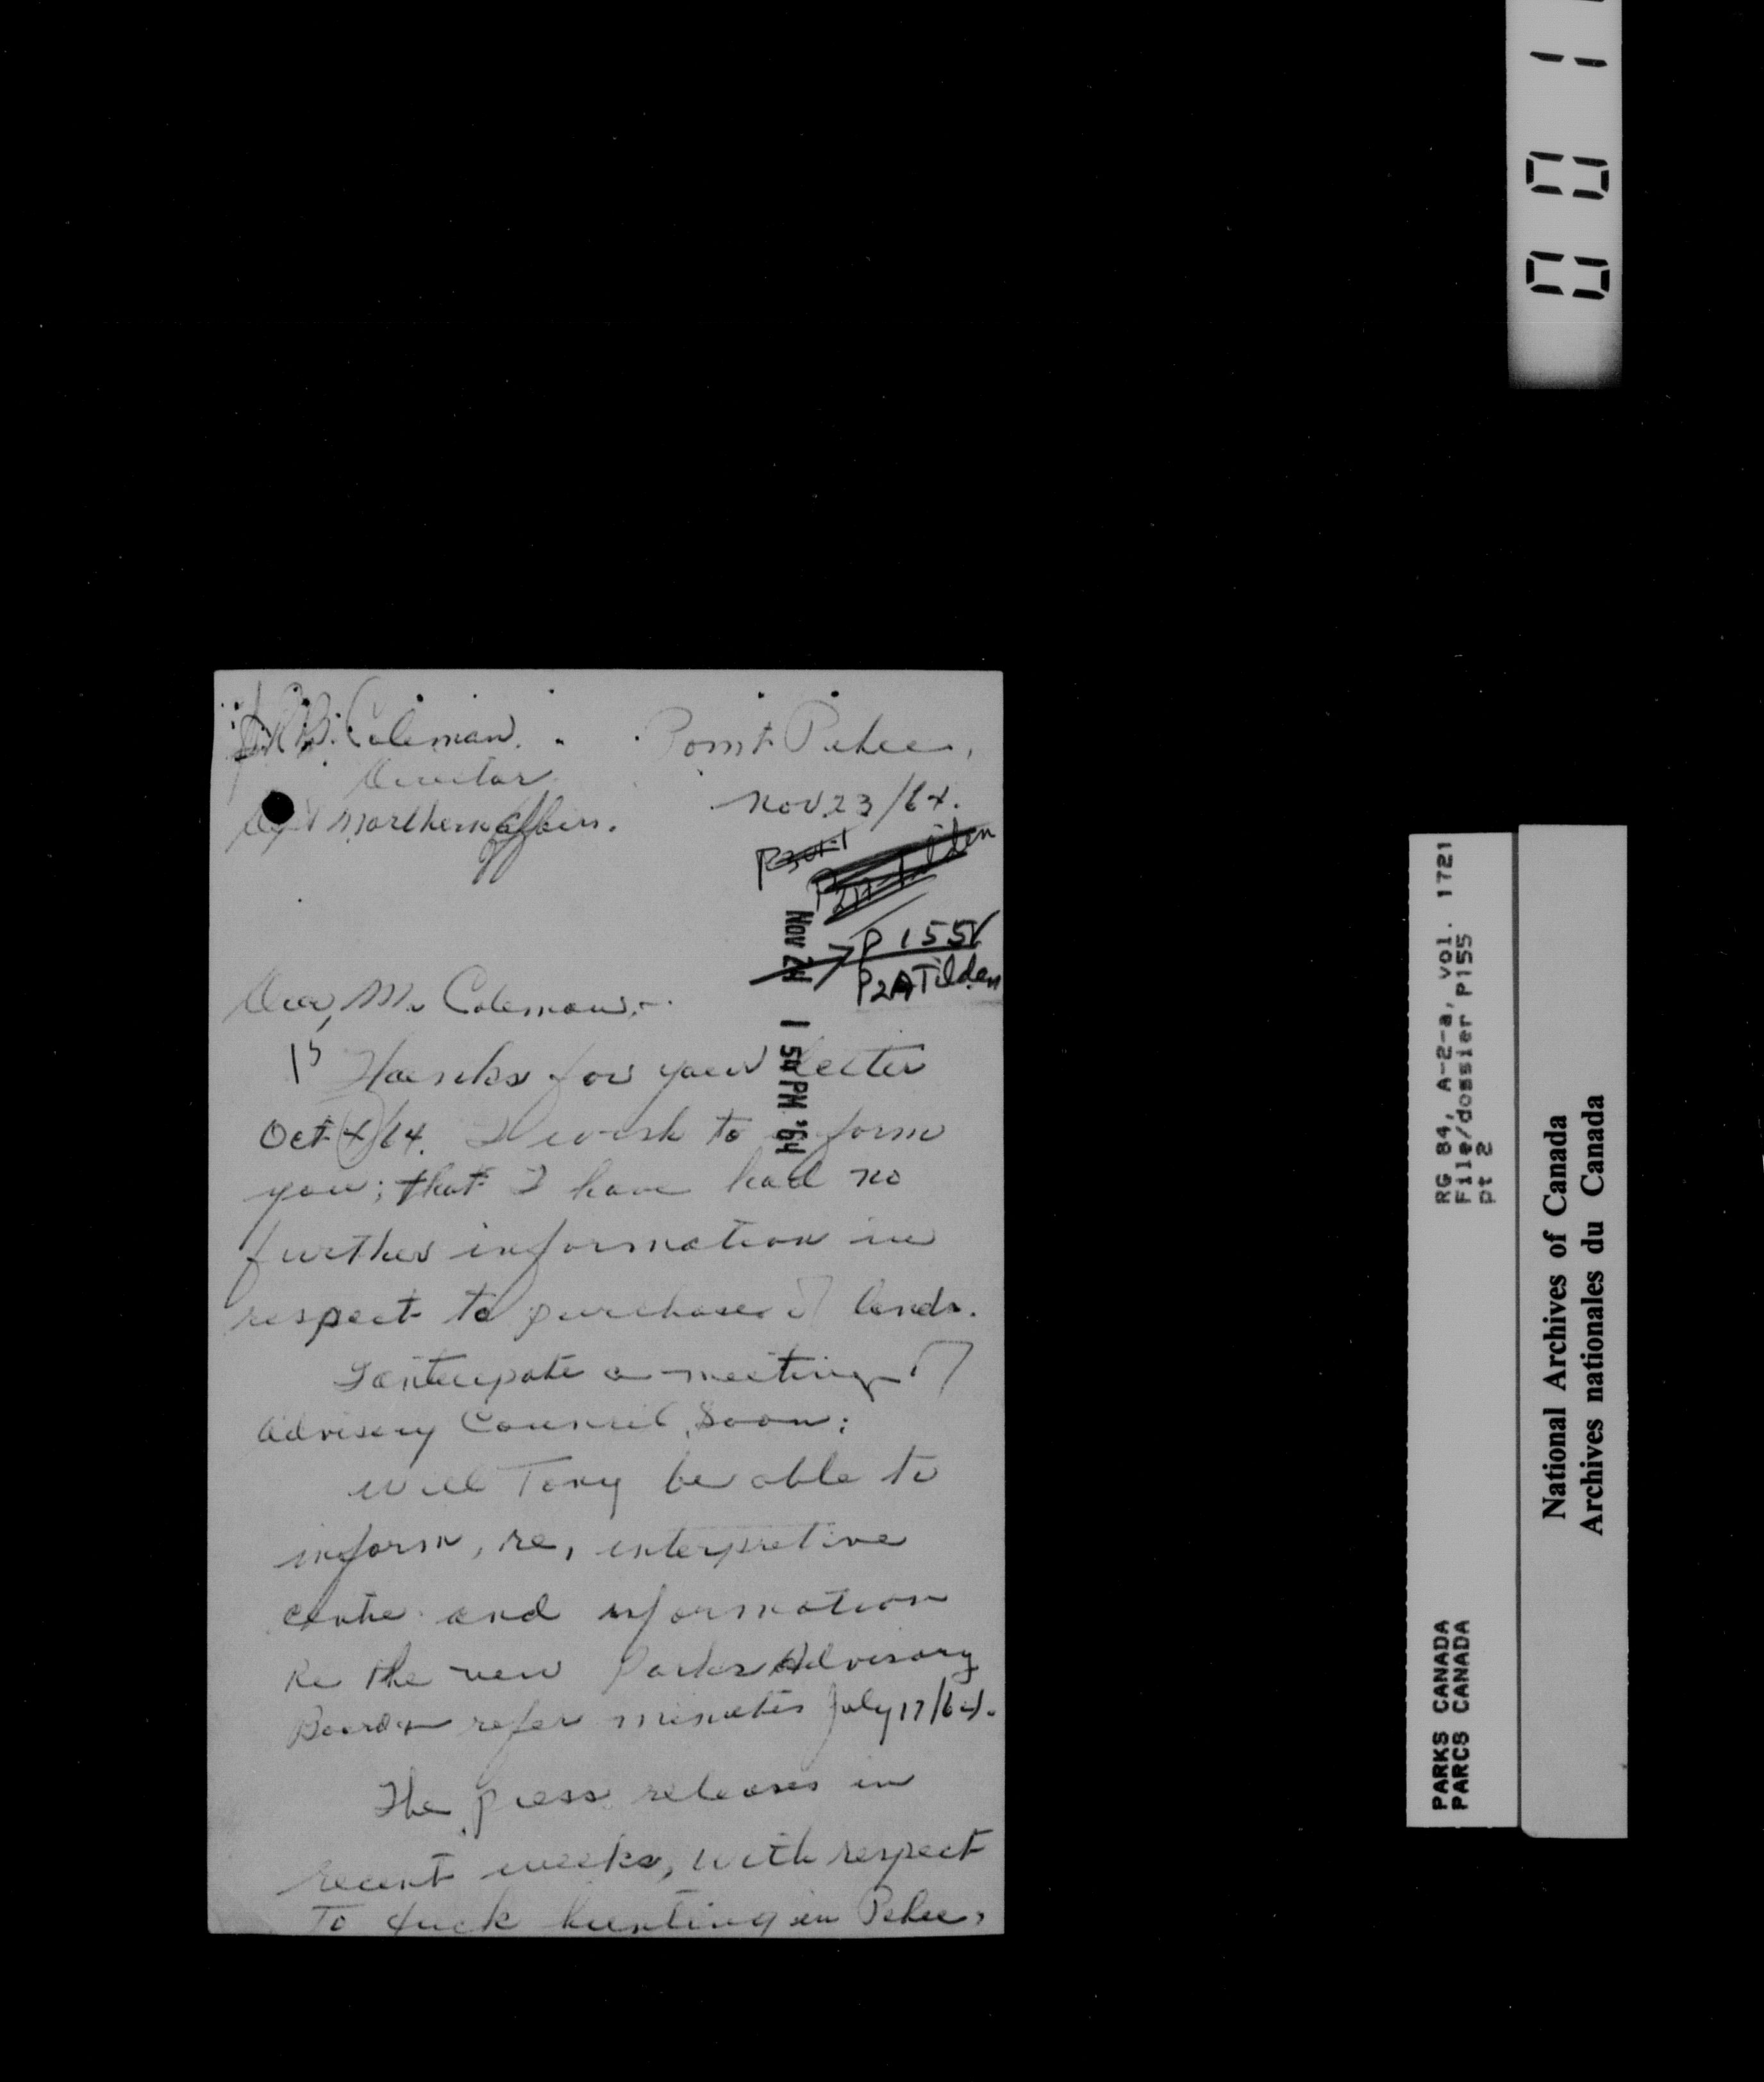 J.R.B. Coleman. Point Pelee,
Director
Nov. 23/64.
Dept Northern Affairs.
P301-1
P2A Tilden
P155
P2A Tilden
Nov 24 1 54 PM '64
Dear Mr Coleman:-
Thanks for your letter
Oct 4/64. I wish to inform
you; that I have had no
further information in
respect to purchase of lands.
I anticipate a meeting of
Advisory Council, soon;
Will Tony be able to
inform, re, interpretive
centre and information
Re the new Parks Advisory
Board refer minutes July 17/64.
The press releases in
recent weeks, with respect
To duck hunting in Pelee,
RG 84, A-2-a, vol. 1721
File/dossier P155
pt 2
PARKS CANADA
PARCS CANADA
National Archives of Canada
Archives nationales du Canada
001